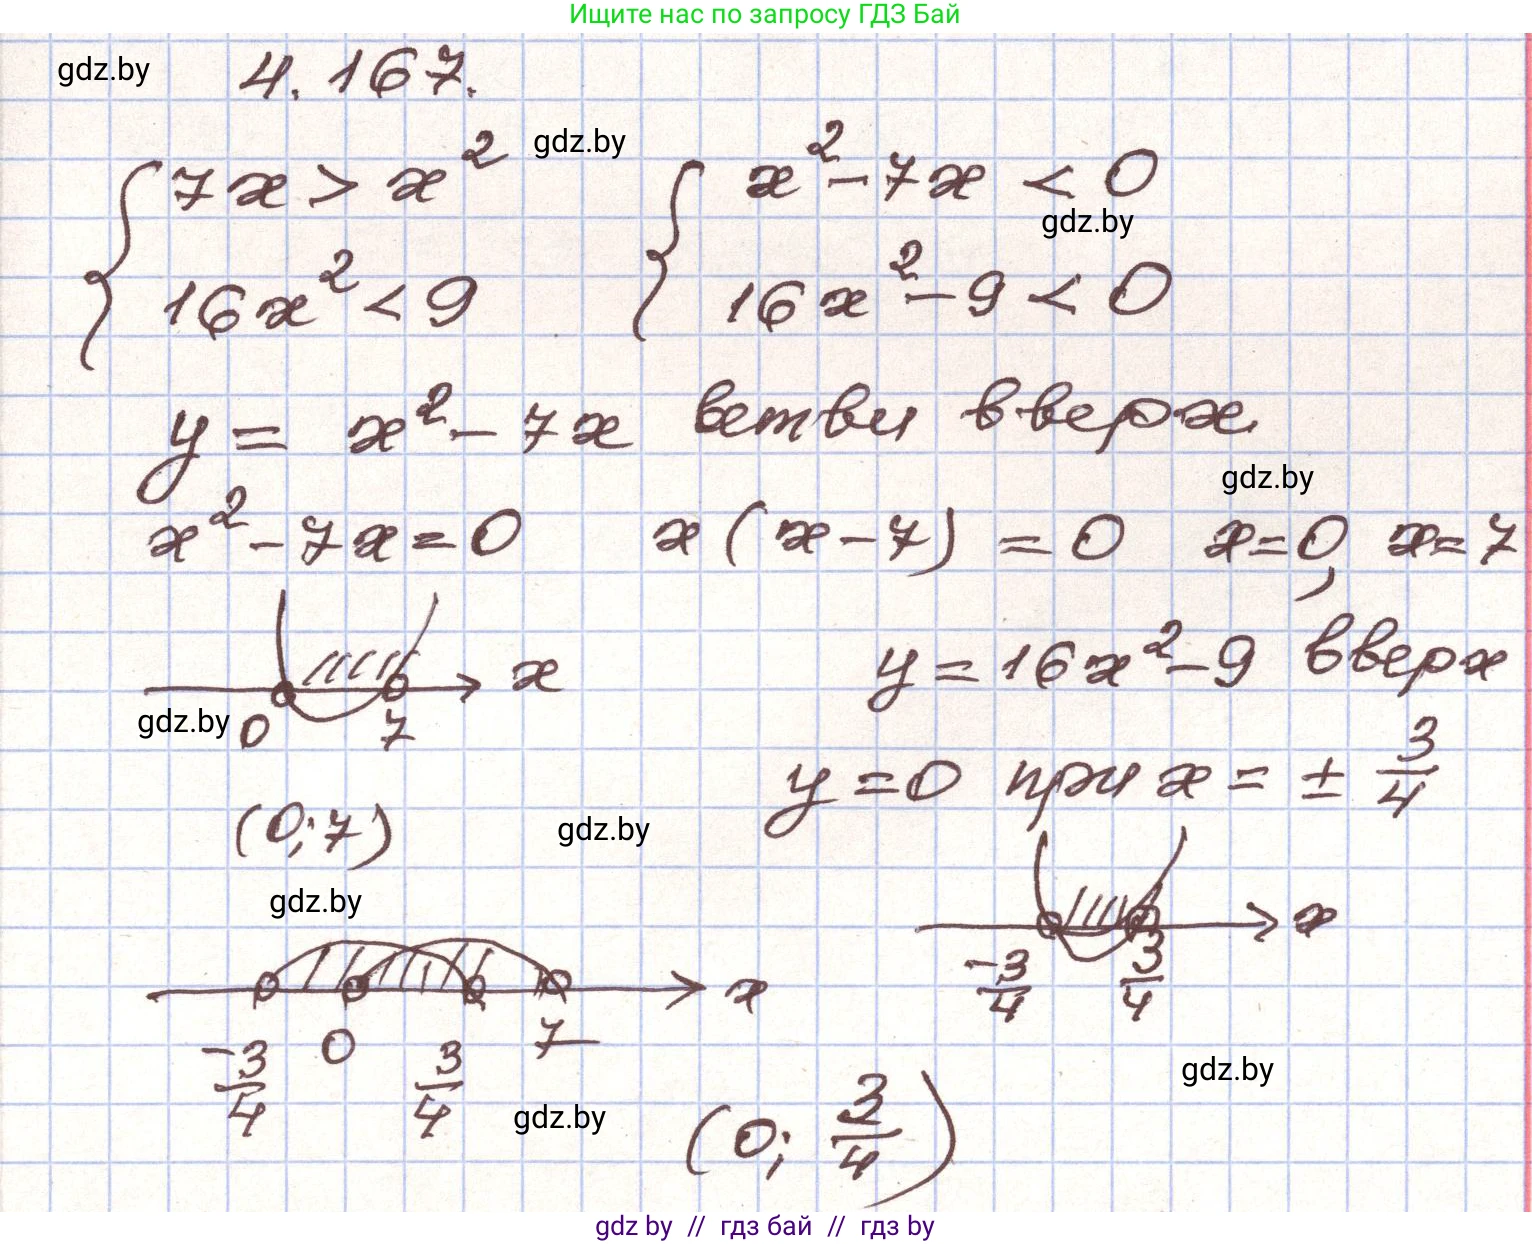 Ищите нас по запросу ГДЗ Бай
gdz.by 4.167.
{ 7x > x² gdz.by { x² - 7x < 0
gdz.by
16x² < 9 16x² - 9 < 0
y = x² - 7x ветви вверх.
gdz.by
x² - 7x = 0 x(x - 7) = 0 x = 0, x = 7
x y = 16x² - 9 вверх
gdz.by 0 7
y = 0 при x = ± 3/4
(0; 7) gdz.by
gdz.by
x
-3/4 3/4
x
-3/4 0 3/4 7
gdz.by
gdz.by
(0; 3/4)
gdz by // гдз бай // гдз by